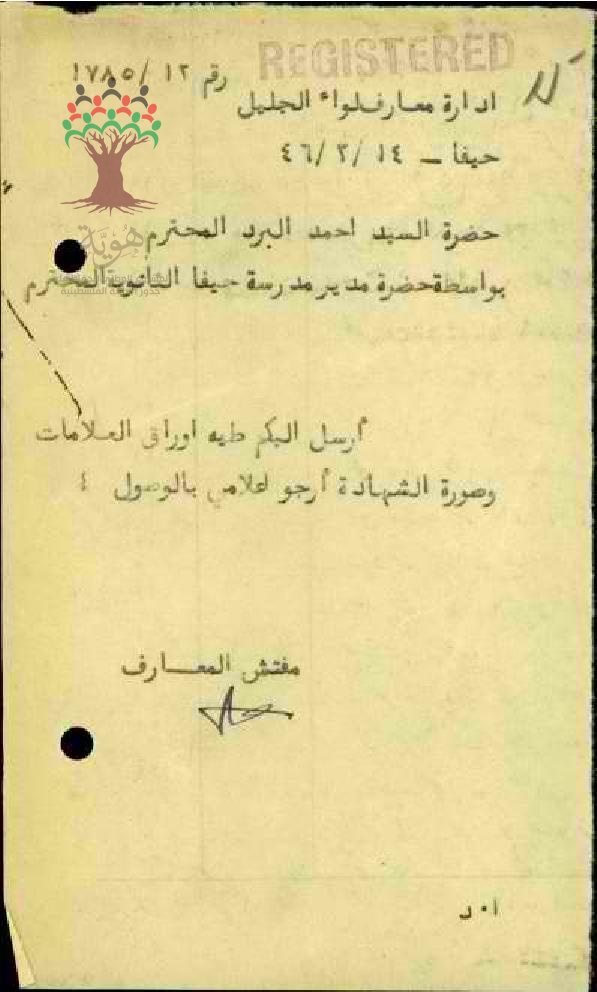 REGISTERED
رقم ١٢/ ١٧٨٥
ادارة معارف لواء الجليل
حيفا - ١٤ /٢/ ٤٦
حضرة السيد احمد البرد المحترم
هُوِيَّة
بواسطة حضرة مدير مدرسة حيفا الثانوية المحترم
أرسل اليكم طيه اوراق العلامات
وصورة الشهادة أرجو اعلامي بالوصول ؛
مفتش المعارف
ا٠ د